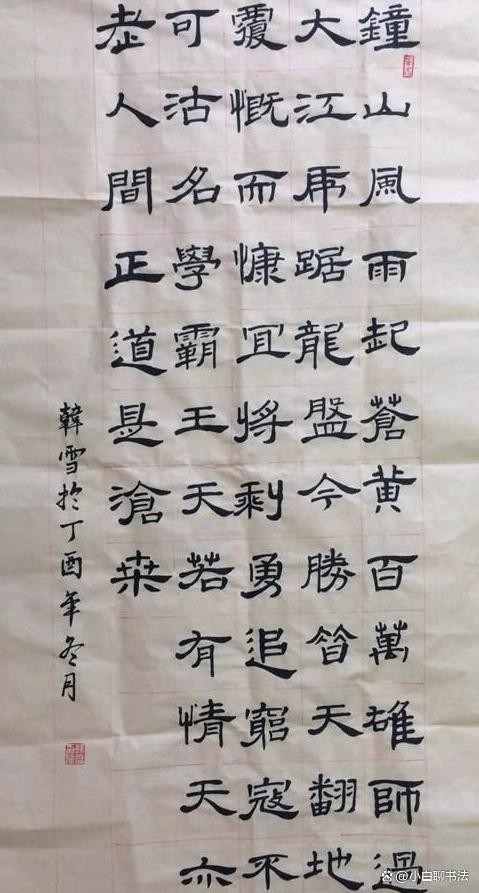 鐘山風雨起蒼黄百萬雄師過
大江虎踞龍盤今勝昔天翻地
覆慨而慷宜將剩勇追窮寇不
可沽名學霸王天若有情天亦
老人間正道是滄桑
韓雪於丁酉年冬月
@小白聊书法